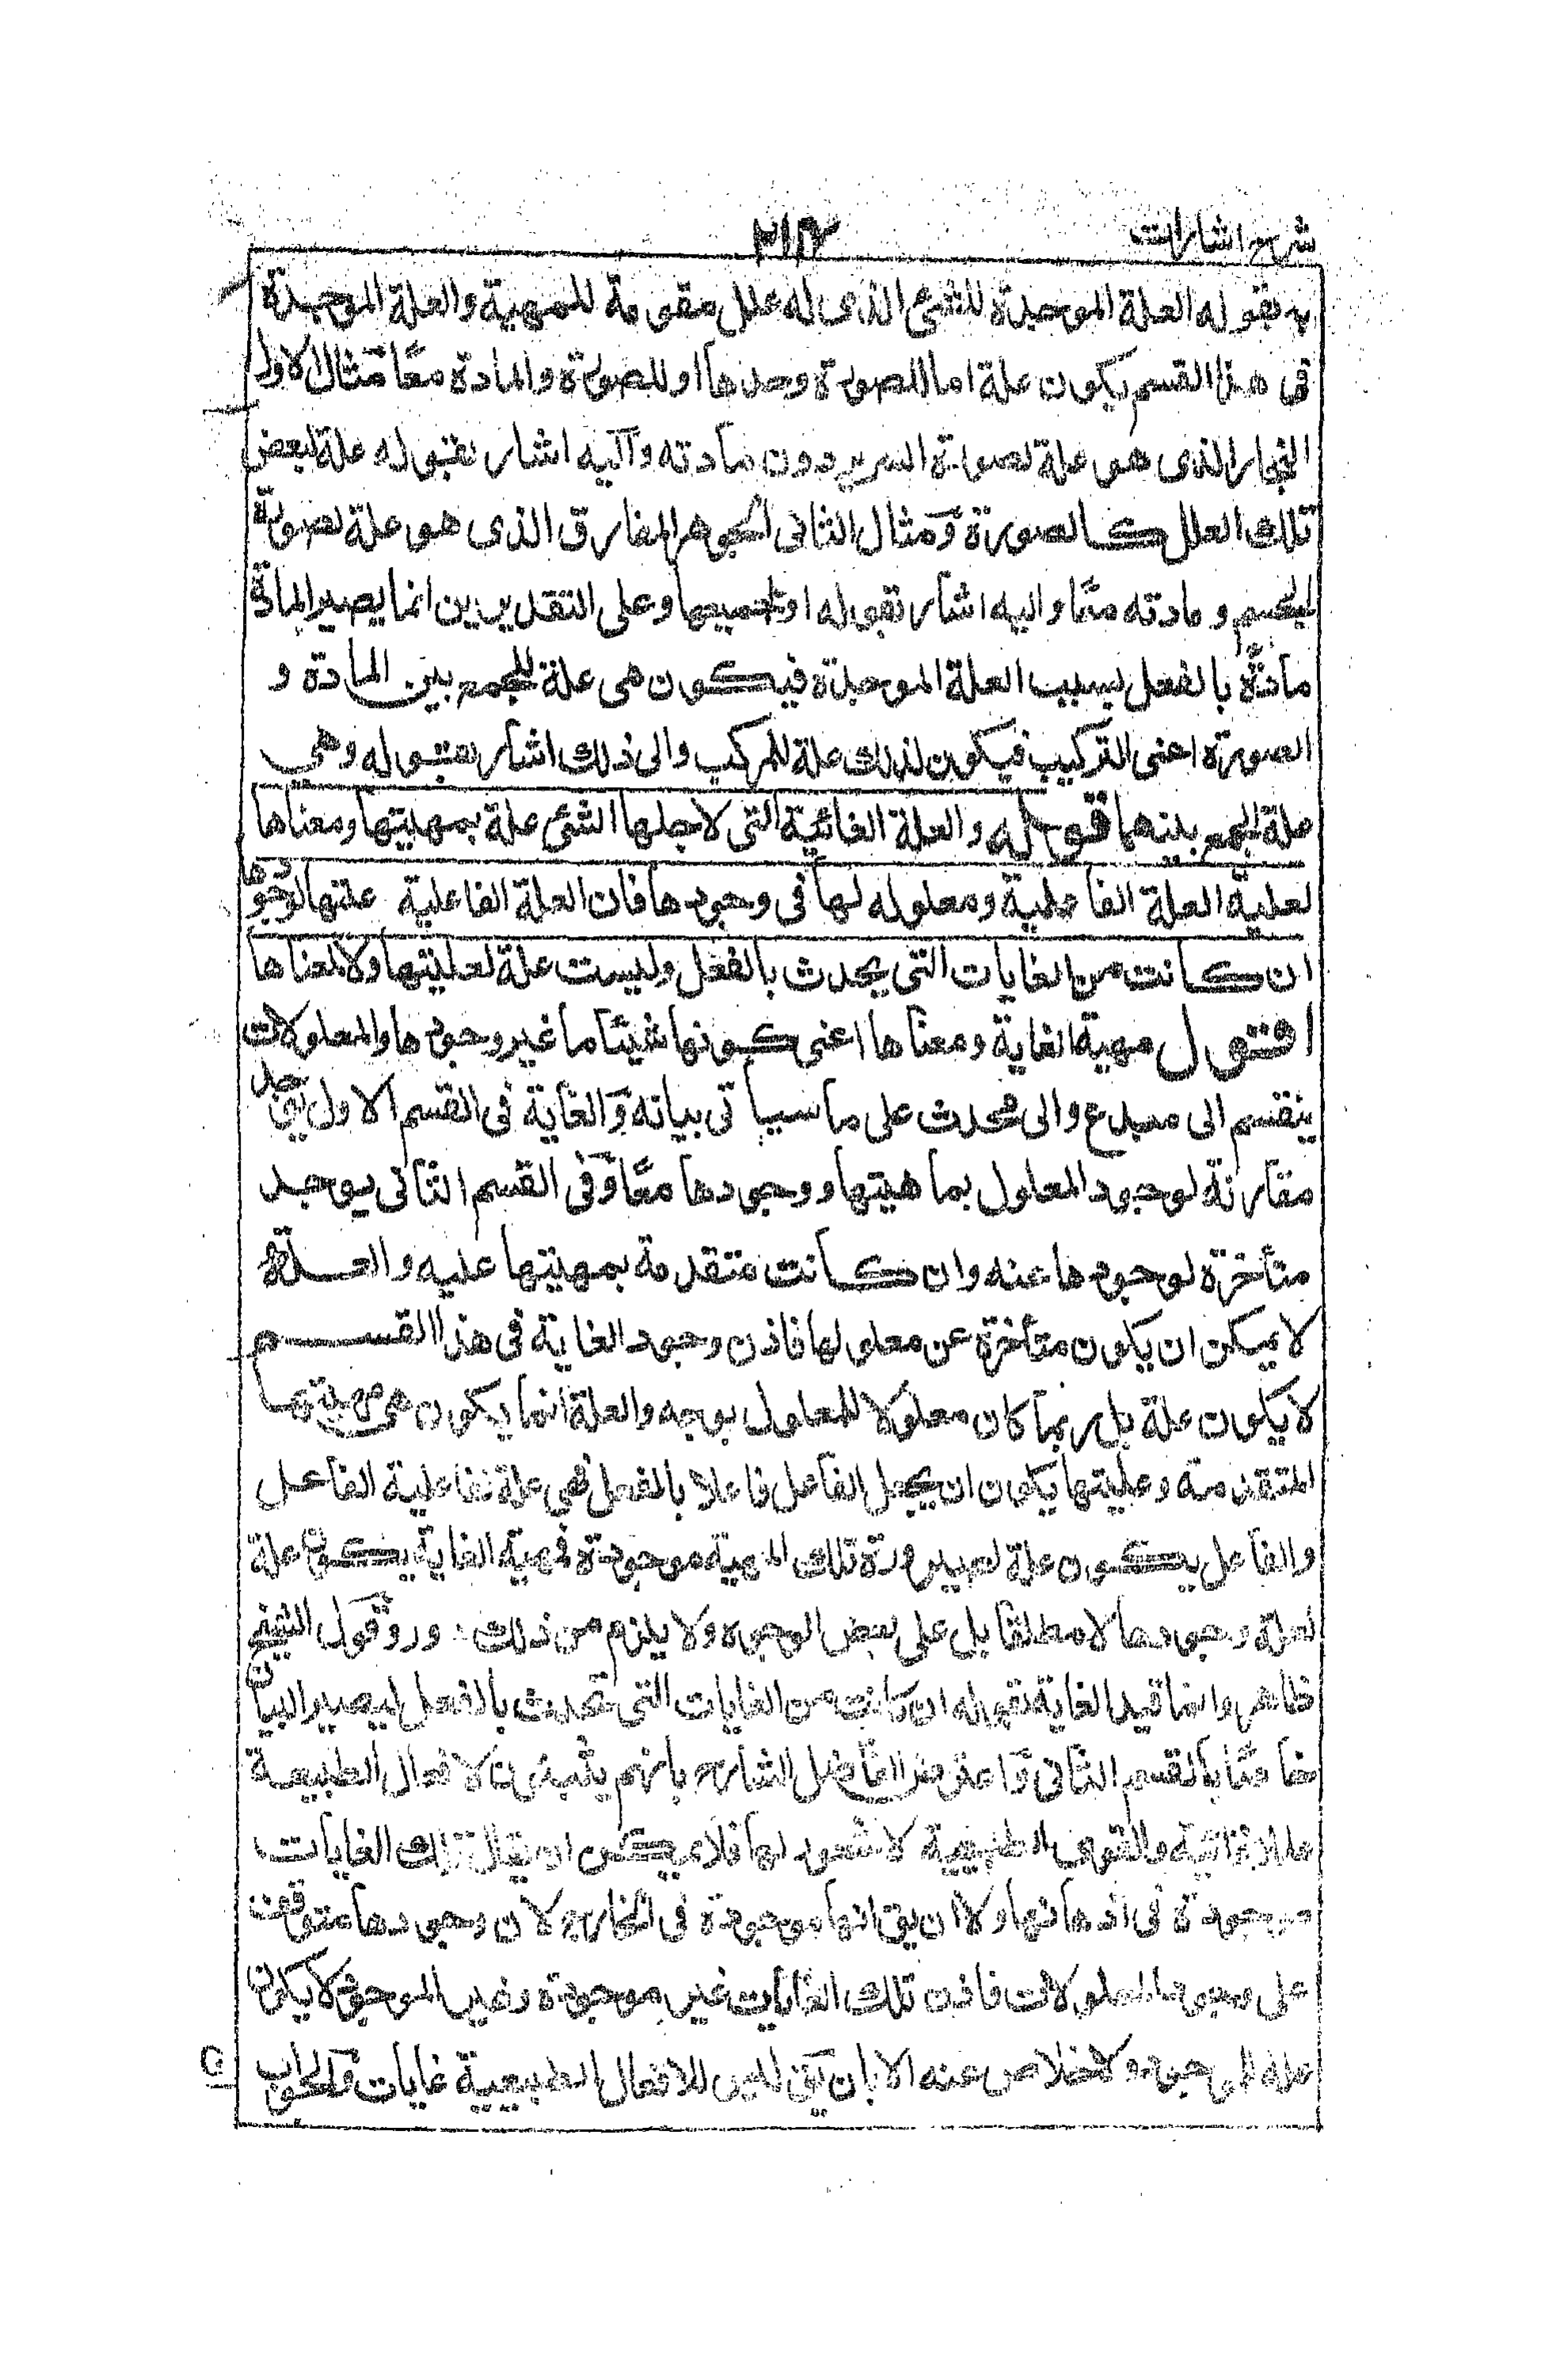 شرح اشارات
٢١٢
بقوله العلة الموجدة للشئ الذى له علل مقومة للمهية والعلة الموجدة
فى هذا القسم يكون علة اما للصورة وحدها او للصورة والمادة معًا مثال الاول
النجار الذى هو علة لصورة السرير دون مادته وآليه اشار بقوله علة لبعض
تلك العلل كالصورة ومثال الثانى الجوهر المفارق الذى هو علة لصورة
الجسم و مادته معًا واليه اشار بقوله او لجميعها وعلى التقديرين انما يصير المادة
مادةً بالفعل بسبب العلة الموجدة فيكون هى علة للجمع بين المادة و
الصورة اعنى التركيب فيكون لذلك علة للمركب والى ذلك اشار بقوله وهى
علة الجمع بينهما قوله والعلة الغائية التى لاجلها الشئ علة بمهيتها ومعناها
لعلية العلة الفاعلية ومعلوله لها فى وجودها فان العلة الفاعلية علتها لوجودها
ان كانت من الغايات التى يحدث بالفعل وليست علة لعليتها ولا لمعناها
اقول مهية الغاية ومعناها اعنى كونها شيئًا ما غير وجودها والمعلولات
ينقسم الى مبدع والى محدث على ما سيأتى بيانه والغاية فى القسم الاول يوجد
مقارنة لوجود المعلول بماهيتها ووجودها معًا وفى القسم الثانى يوجد
متأخرة لوجودها عنه وان كانت متقدمة بمهيتها عليه والعلة
لا يمكن ان يكون متأخرة عن معلولها فاذن وجود الغاية فى هذا القسم
لا يكون علة بل ربما كان معلولا للمعلول بوجه والعلة انما يكون هى مهيتها
المتقدمة وعليتها يكون ان يجعل الفاعل فاعلا بالفعل فهى علة لفاعلية الفاعل
والفاعل يكون علة لصيرورة تلك المهية موجودة فمهية الغاية يكون علة
لعلة وجودها لا مطلقا بل على بعض الوجوه ولا يلزم من ذلك دور وقول الشيخ
ظاهر وانما قيد الغاية بقوله ان كانت من الغايات التى تحدث بالفعل ليصير البيان
خاصًّا بالقسم الثانى واعترض الفاضل الشارح بانهم يثبتون لافعال الطبيعة
عللا غائية والقوى الطبيعية لا شعور لها فلا يمكن ان يقال تلك الغايات
موجودة فى اذهانها ولا ان يق انها موجودة فى الخارج لان وجودها متوقف
على وجود المعلولات فاذن تلك الغايات غير موجودة وغير الموجود لا يكون
علة للموجود ولا خلاص عنه الا بان يق ليس للافعال الطبيعية غايات والجواب